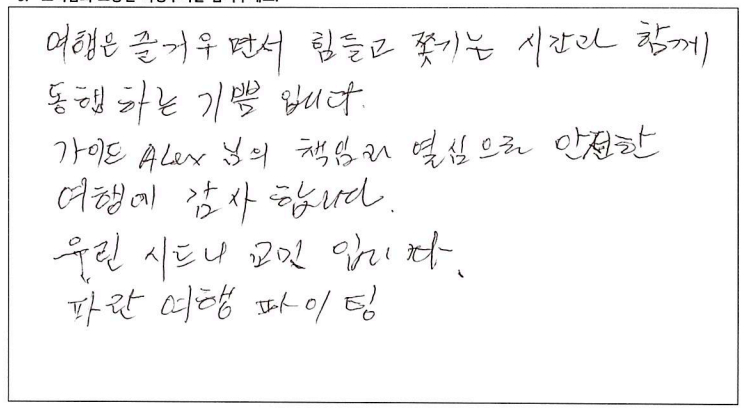 여행은 즐거우면서 힘들고 쫓기는 시간과 함께
동행하는 기쁨 입니다.
가이드 Alex 님의 책임과 열심으로 안전한
여행에 감사 합니다.
우린 시드니 교민 입니다.
파란여행 파이팅